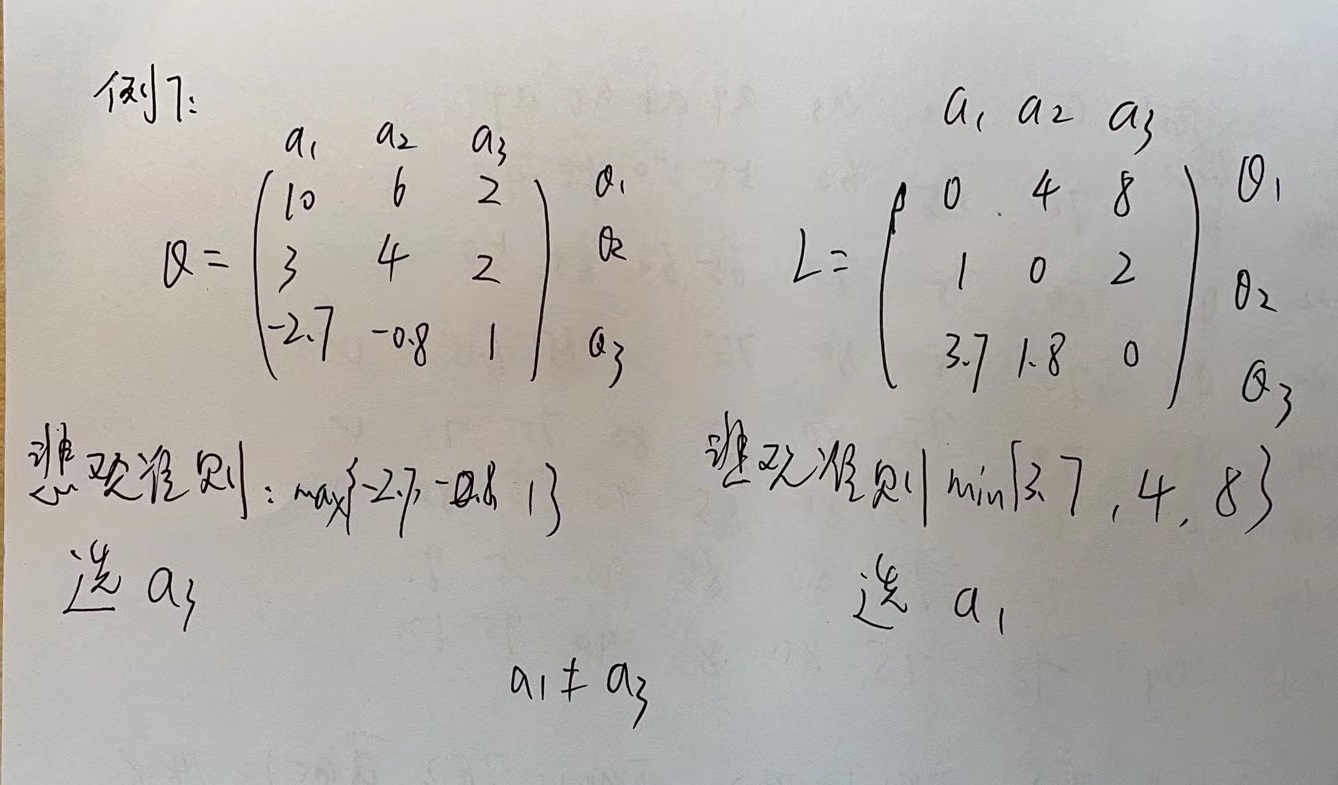 例7:
a₁ a₂ a₃
Q = ( 10 6 2 ) θ₁
( 3 4 2 ) θ₂
( -2.7 -0.8 1 ) θ₃
悲观准则: max{-2.7, -0.8 1}
选 a₃
a₁ a₂ a₃
L = ( 0 4 8 ) θ₁
( 1 0 2 ) θ₂
( 3.7 1.8 0 ) θ₃
悲观准则 min{3.7, 4, 8}
选 a₁
a₁ ≠ a₃